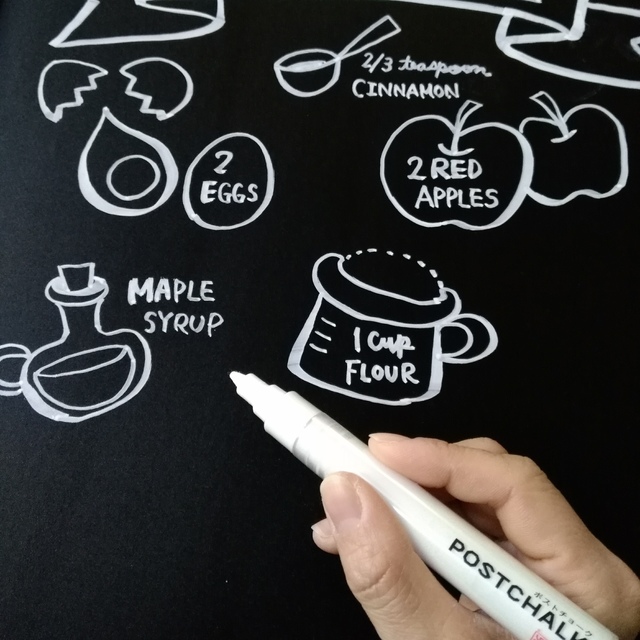 2/3 teaspoon
CINNAMON
2
EGGS
2 RED
APPLES
MAPLE
SYRUP
1 cup
FLOUR
POSTCHALK
ポストチョーク